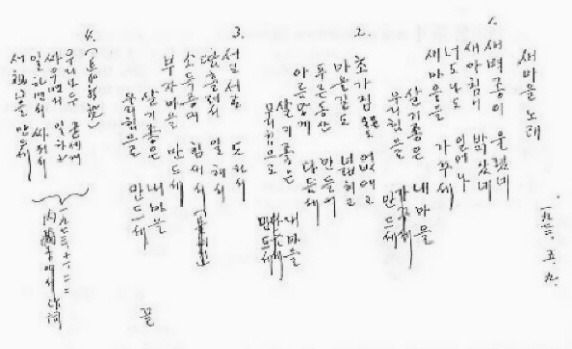 새마을 노래
一九七二. 五. 九.
1. 새벽종이 울렸네
새아침이 밝았네
너도나도 일어나
새마을을 가꾸세
살기좋은 내마을
우리힘으로 만드세
2. 초가집도 없애고
마을길도 넓히고
푸른동산 만들어
아름답게 다듬세
살기좋은 내마을
우리힘으로 만드세
3. 서로서로 도와서
땀흘려서 일해서
소득증대 힘써서
부자마을 만드세
살기좋은 내마을
우리힘으로 만드세
끝
4.
우리모두 굳세게
싸우면서 일하고
일하면서 싸워서
一九七三
에서 作詞